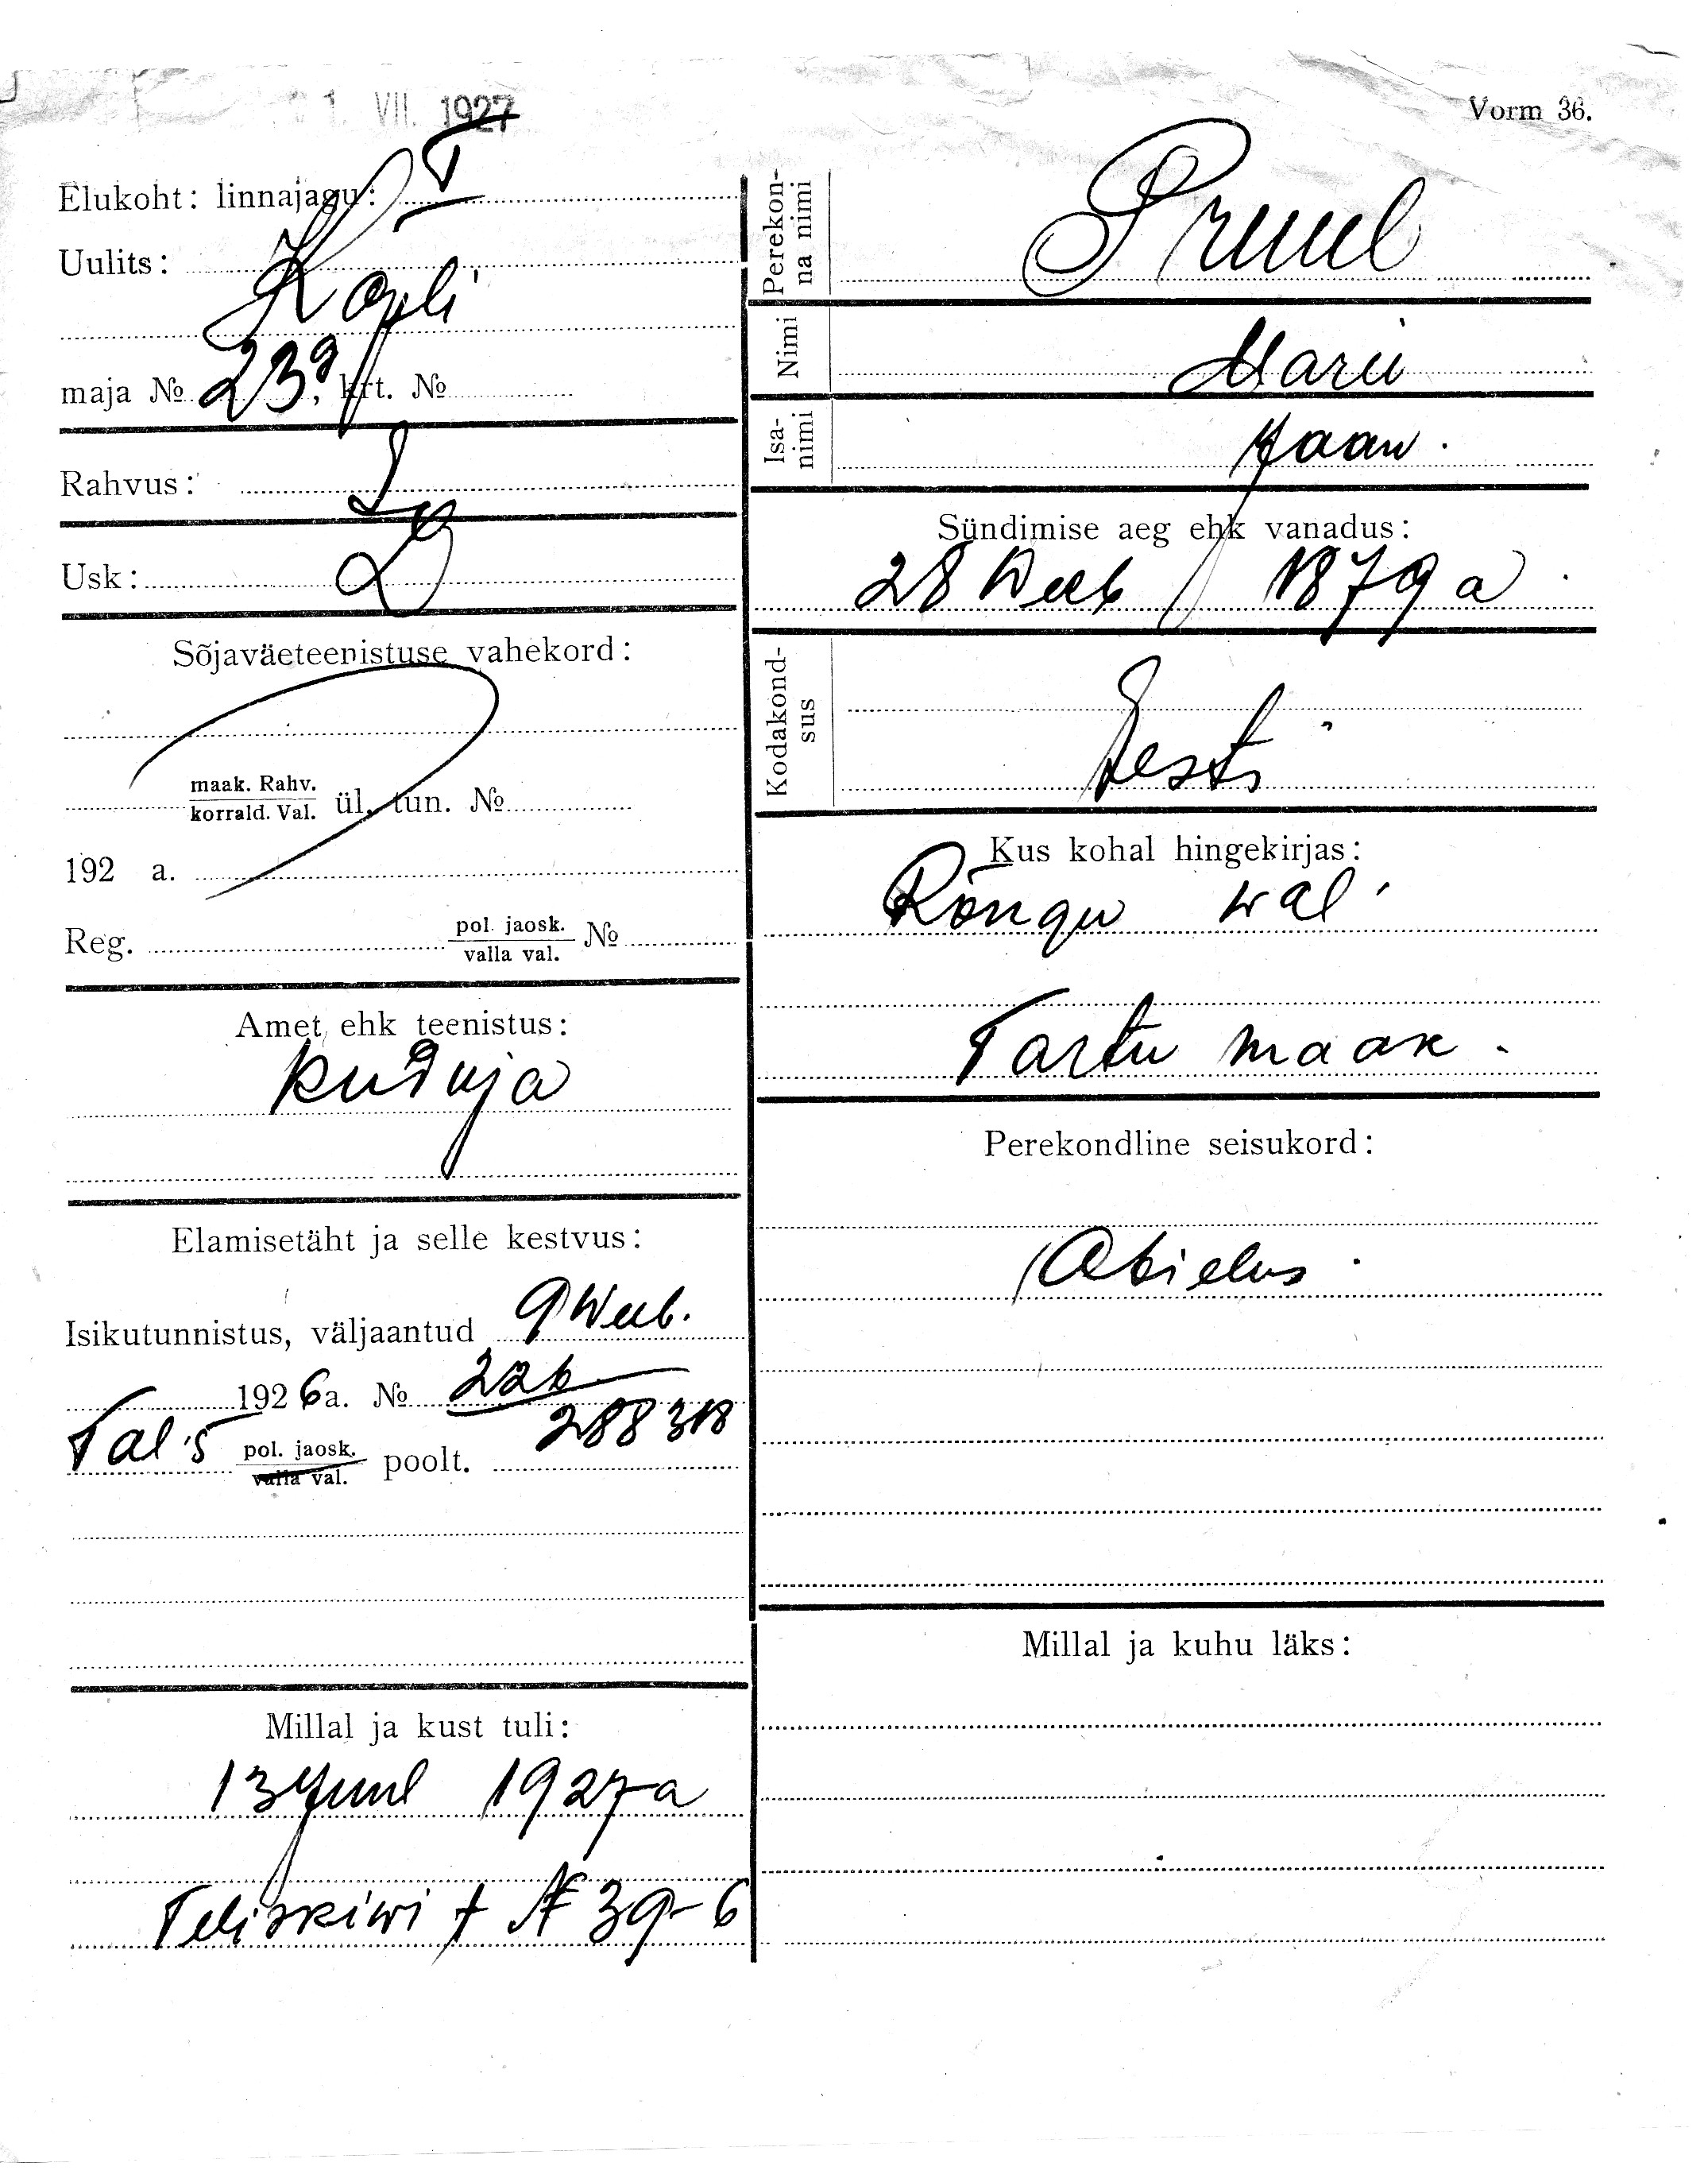 1. VII. 1927
Vorm 36.
Elukoht: linnajagu:
Uulits:
Kopli
maja № 23a, krt. №
Rahvus:
Usk: L
Sõjaväeteenistuse vahekord:
maak. Rahv.
korrald. Val. ül. tun. №
192 a.
Reg. pol. jaosk.
valla val. №
Amet ehk teenistus:
kuduja
Elamisetäht ja selle kestvus:
Isikutunnistus, väljaantud 9 Weeb.
1926 a. № 226
288318
Tal 5 pol. jaosk.
valla val. poolt.
Millal ja kust tuli:
13 Juul 1927 a
Teliskiwi t № 39-6
Perekonna nimi
Pruul
Nimi
Marii
Isanimi
Jaan.
Sündimise aeg ehk vanadus:
28 Weeb 1879 a.
Kodakondsus
Eesti
Kus kohal hingekirjas:
Rõngu wal.
Tartu maak.
Perekondline seisukord:
Abielus.
Millal ja kuhu läks: